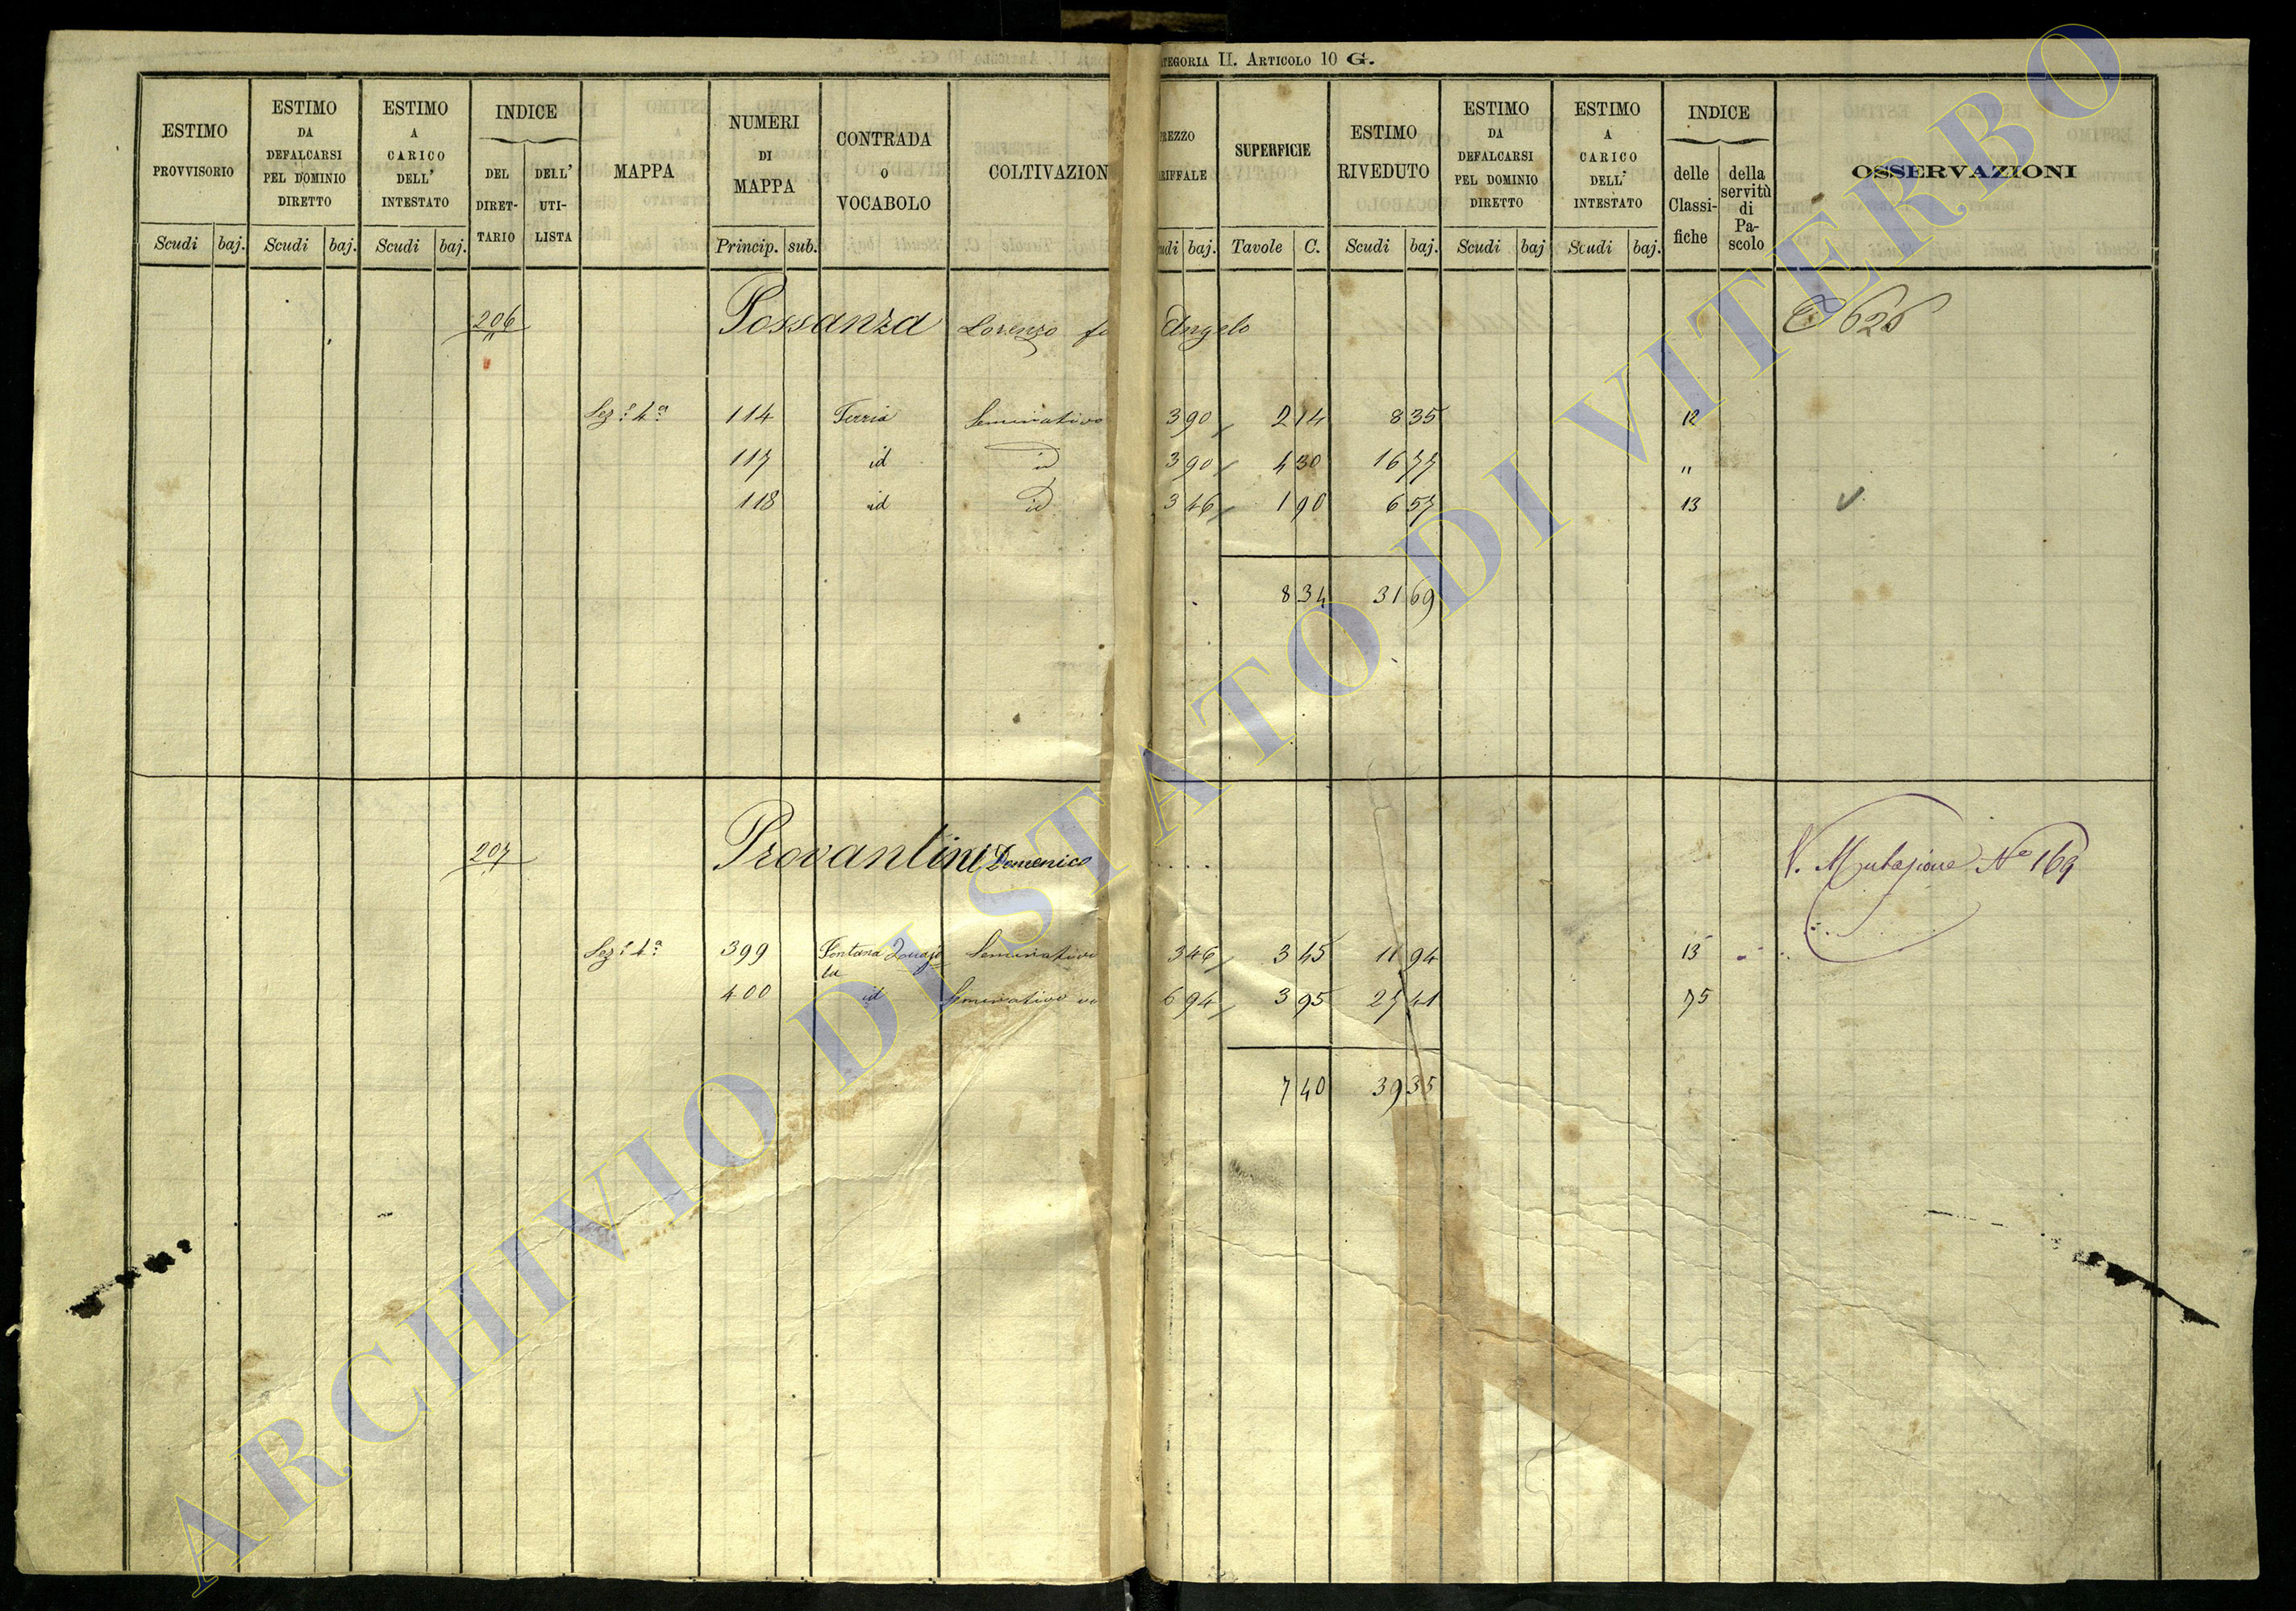 CATEGORIA II. ARTICOLO 10 G.
ESTIMO PROVVISORIO Scudi baj.
ESTIMO DA DEFALCARSI PEL DOMINIO DIRETTO Scudi baj.
ESTIMO A CARICO DELL' INTESTATO Scudi baj.
INDICE DEL DIRETTARIO DELL' UTILISTA
MAPPA
NUMERI DI MAPPA Princip. sub.
CONTRADA O VOCABOLO
COLTIVAZION
REZZO RIFFALE udi baj.
SUPERFICIE Tavole C.
ESTIMO RIVEDUTO Scudi baj.
ESTIMO DA DEFALCARSI PEL DOMINIO DIRETTO Scudi baj
ESTIMO A CARICO DELL' INTESTATO Scudi baj.
INDICE delle Classifiche della servitù di Pascolo
OSSERVAZIONI
206 Possanza Lorenzo fu Angelo 626
Sez.e 4a 114 Terria Seminativo 3 90 2 14 8 35 12
117 id id 3 90 4 30 16 77 "
118 id id 3 46 1 90 6 57 13
8 34 31 69
207 Provantini Domenico V. Mutazione No 169
Sez.e 4a 399 Fontana Seminativo 3 46 3 45 11 94 13
400 id Seminativo 6 94 3 95 27 41 75
7 40 39 35
ARCHIVIO DI STATO DI VITERBO